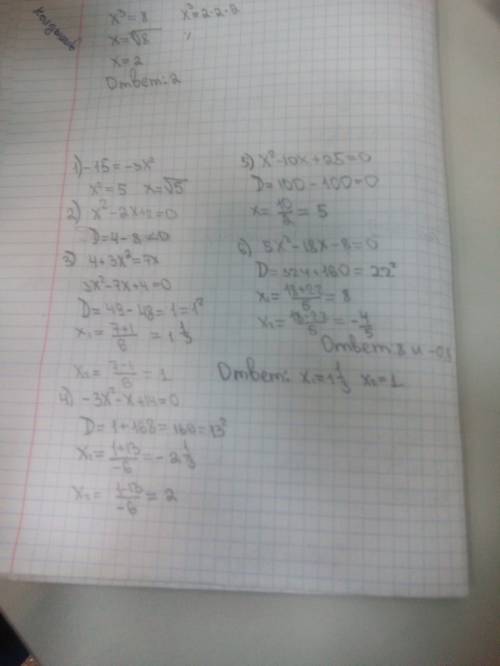 x³=8   x³=2·2·2
x=∛8
x=2
Ответ: 2
1) -15=-3x²
x²=5   x=√5
2) x²-2x+2=0
D=4-8<0
3) 4+3x²=7x
3x²-7x+4=0
D=49-48=1=1²
x₁=(7+1)/6=1 1/3
x₂=(7-1)/6=1
4) -3x²-x+14=0
D=1+168=169=13²
x₁=(1+13)/-6=-2 1/3
x₂=(1-13)/-6=2
5) x²-10x+25=0
D=100-100=0
x=10/2=5
6) 5x²-18x-8=0
D=324+160=22²
x₁=(18+22)/5=8
x₂=(18-22)/5=-4/5
Ответ: 8 и -0,8
Ответ: x₁=1 1/3   x₂=1